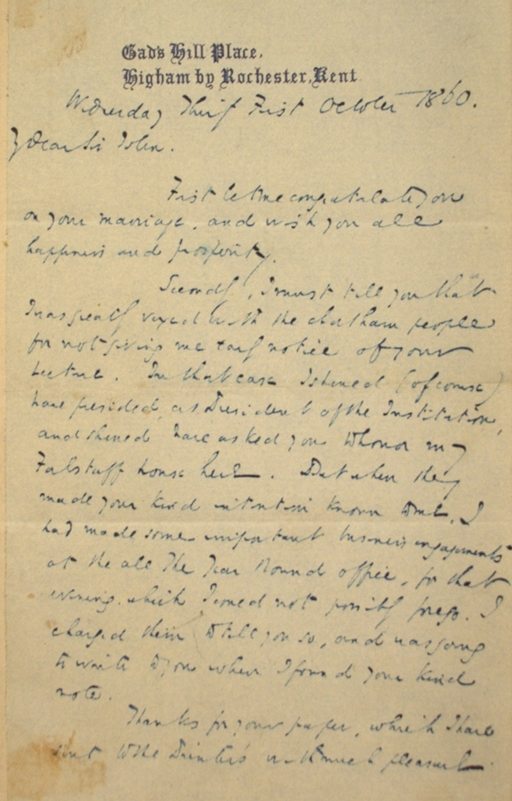 Gad's Hill Place,
Higham by Rochester, Kent.
Wednesday Thirty First October 1860.
My Dear Sir John.
First let me congratulate you
on your marriage, and wish you all
happiness and prosperity.
Secondly, I must tell you that
I was greatly vexed with the Chatham people
for not giving me early notice of your
lecture. In that case I should (of course)
have presided, as President of the Institution,
and should have asked you to honor my
Falstaff house here. But when they
made your kind intention known to me, I
had made some important business engagements
at the All The Year Round office, for that
evening, which I could not possibly forego. I
charged them to tell you so, and was going
to write to you when I found your kind
note.
Thanks for your paper, which I have
sent to the Printer's with much pleasure.